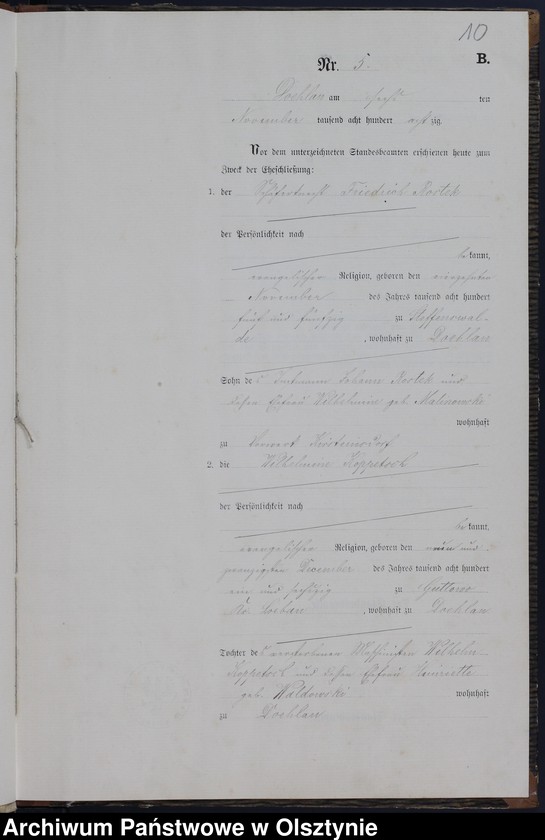 10
B.
Nr. 5.
Doehlau am sechs ten
November tausend acht hundert achtzig.
Vor dem unterzeichneten Standesbeamten erschienen heute zum
Zweck der Eheschließung:
1. der Friedrich Rostek
der Persönlichkeit nach
bekannt,
evangelischer Religion, geboren den
November des Jahres tausend acht hundert
fünf und fünfzig zu Steffenswal-
de, wohnhaft zu Doehlau
Sohn des Instmann Johann Rostek und
dessen Ehefrau Wilhelmine geb. Malinowski
wohnhaft
zu Vorwerk
2. die Wilhelmine Koppetsch
der Persönlichkeit nach
bekannt,
evangelischer Religion, geboren den neun und
zwanzigsten December des Jahres tausend acht hundert
ein und sechszig zu Guttowo
Kr. Loebau, wohnhaft zu Doehlau
Tochter des verstorbenen Wilhelm
Koppetsch und dessen Ehefrau Henriette
geb. Waldowski wohnhaft
zu Doehlau.
Archiwum Państwowe w Olsztynie